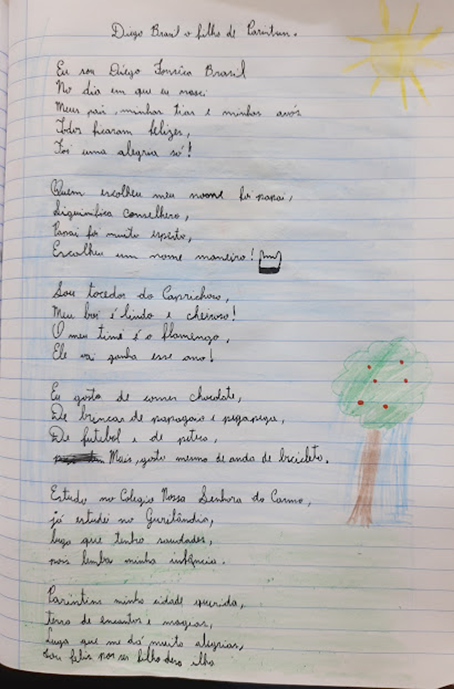 Diego Brasil o filho de Parintins.
Eu sou Diego Fonsêca Brasil
No dia em que eu nasci
Meus pais, minhas tias e minhas avós
Todos ficaram felizes,
Foi uma alegria só!
Quem escolheu meu nome foi papai,
Siguinifica conselhero,
Papai foi muito esperto,
Escolheu um nome maneiro!
Sou tocedor do Caprichoso,
Meu boi é lindo e cheiroso!
O meu time é o flamengo,
Ele vai ganha esse ano!
Eu gosto de comer chocolate,
De brincar de papagaio e pegapega,
De futebol e de peteca,
Mais, gosto mesmo de anda de bicicleta.
Estudo no Colégio Nossa Senhora do Carmo,
já estudei no Gurilândia,
luga que tenho saudades,
pois lemba minha infância.
Parintins minha cidade querida,
terra de encantos e magias,
Luga que me dá muito alegrias,
Sou feliz por ser filho desa ilha